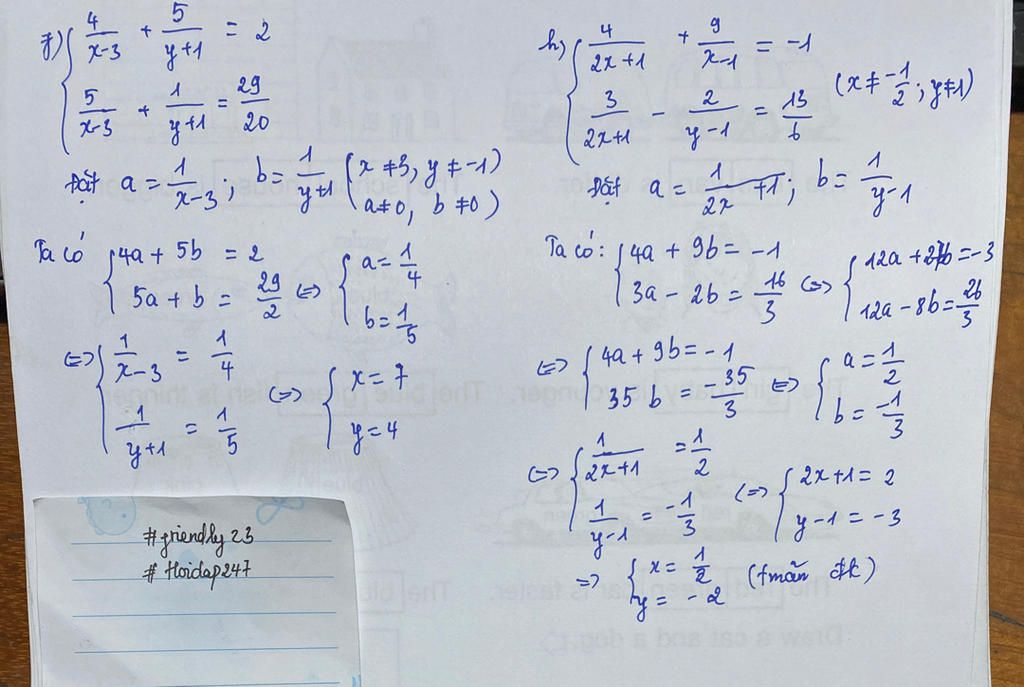 g) { 4/(x-3) + 5/(y+1) = 2
5/(x-3) + 1/(y+1) = 29/20
Đặt a = 1/(x-3); b = 1/(y+1) (x ≠ 3, y ≠ -1
a ≠ 0, b ≠ 0)
Ta có { 4a + 5b = 2
5a + b = 29/2 <=> { a = 1/4
b = 1/5
<=> { 1/(x-3) = 1/4
1/(y+1) = 1/5 <=> { x = 7
y = 4
#friendly23
#Hoidap247
h) { 4/(2x+1) + 9/(x-1) = -1
3/(2x+1) - 2/(y-1) = 13/6 (x ≠ -1/2; y ≠ 1)
Đặt a = 1/(2x+1); b = 1/(y-1)
Ta có: { 4a + 9b = -1
3a - 2b = 16/3 <=> { 12a + 27b = -3
12a - 8b = 26/3
<=> { 4a + 9b = -1
35b = -35/3 <=> { a = 1/2
b = -1/3
<=> { 1/(2x+1) = 1/2
1/(y-1) = -1/3 <=> { 2x+1 = 2
y-1 = -3
=> { x = 1/2
y = -2 (tmãn đk)